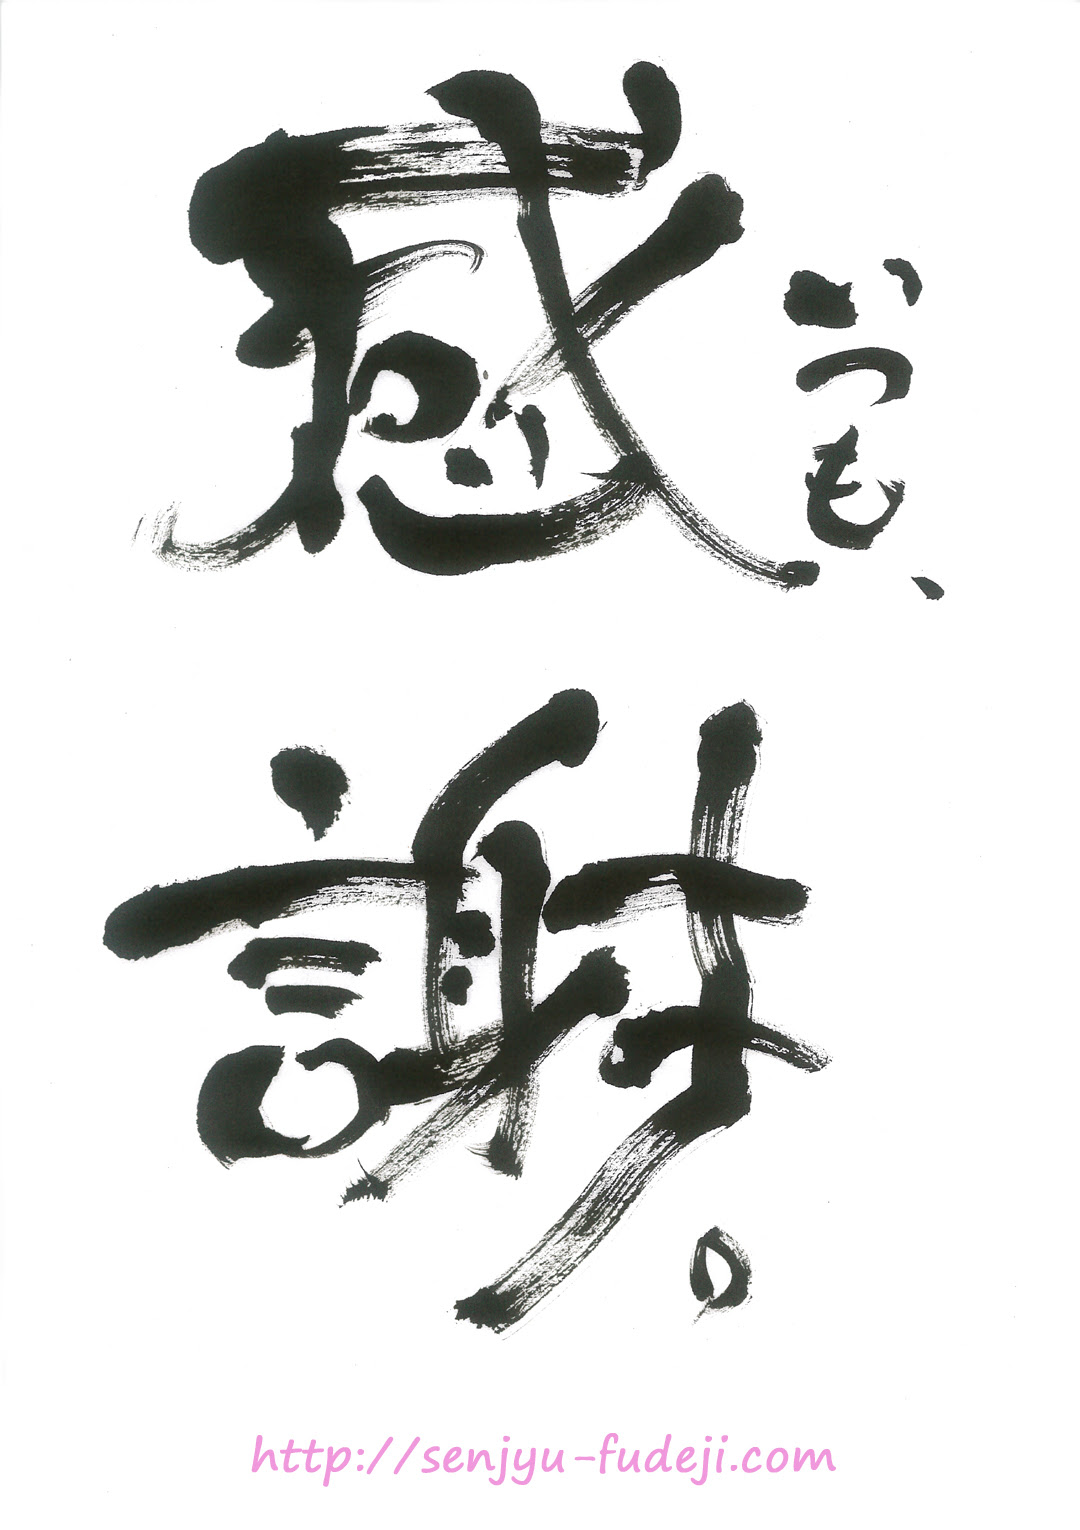 いつも、
感謝。
http://senjyu-fudeji.com